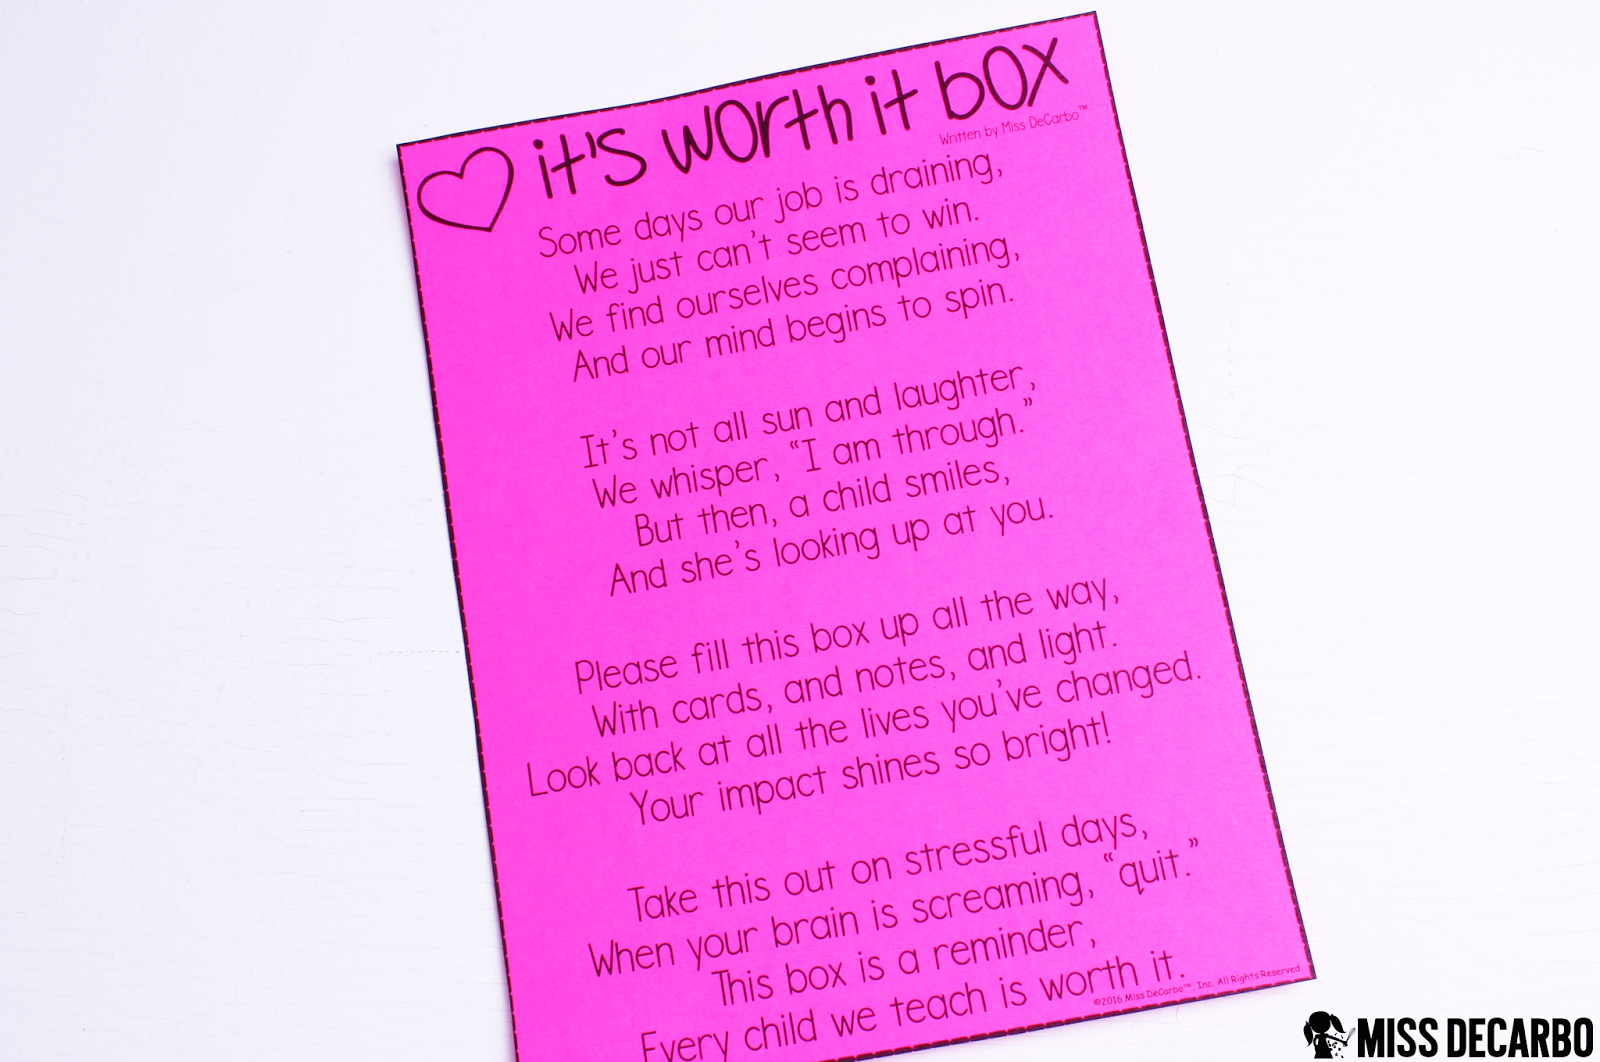 it's worth it box
Written by Miss DeCarbo™
Some days our job is draining,
We just can't seem to win.
We find ourselves complaining,
And our mind begins to spin.
It's not all sun and laughter,
We whisper, “I am through.”
But then, a child smiles,
And she's looking up at you.
Please fill this box up all the way,
With cards, and notes, and light.
Look back at all the lives you've changed.
Your impact shines so bright!
Take this out on stressful days,
When your brain is screaming, “quit.”
This box is a reminder,
Every child we teach is worth it.
©2016 Miss DeCarbo™, Inc. All Rights Reserved.
MISS DECARBO